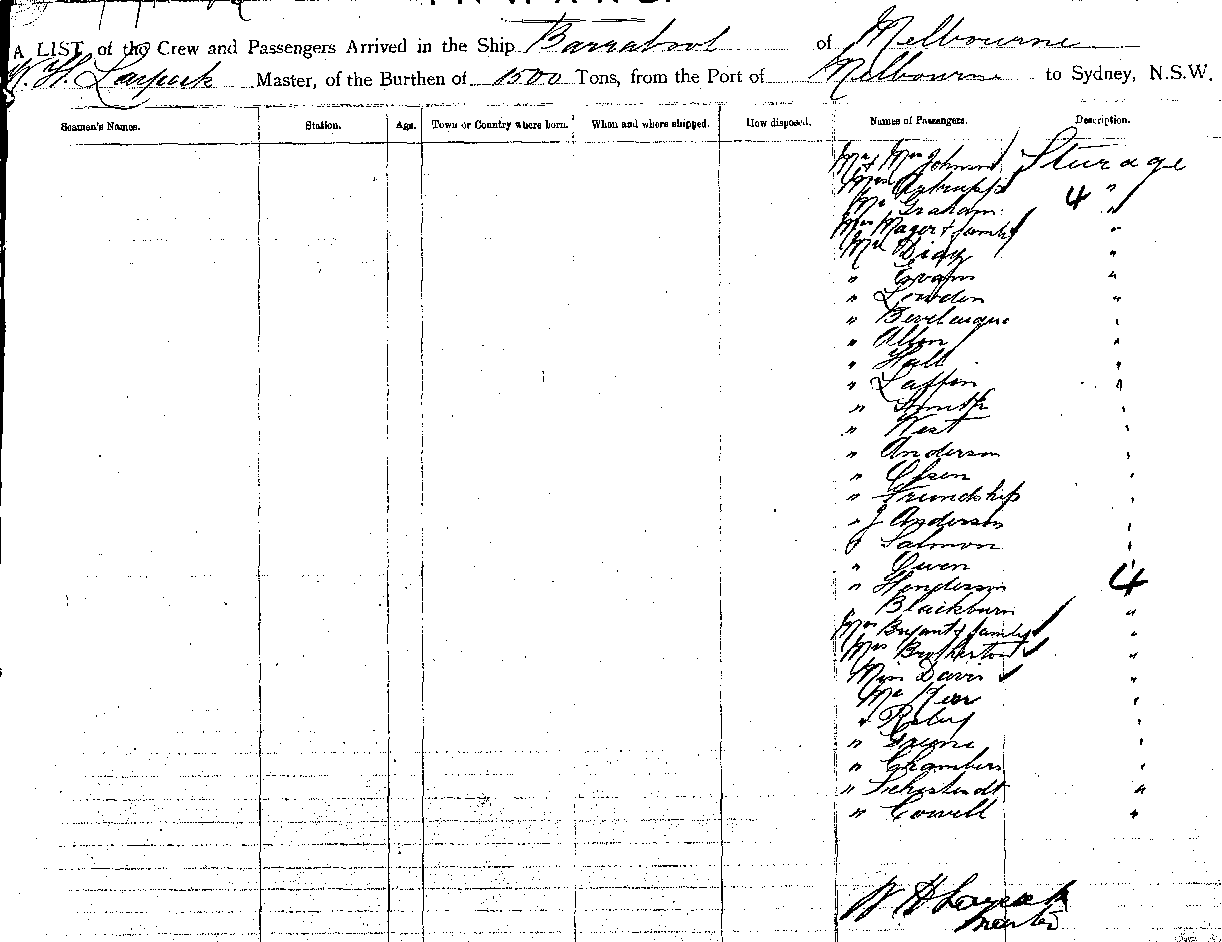 A LIST of the Crew and Passengers Arrived in the Ship Barrabool of Melbourne
W. H. Master, of the Burthen of 1500 Tons, from the Port of Melbourne to Sydney, N.S.W.
Seamen's Names. Station. Age. Town or Country where born. When and where shipped. How disposed. Names of Passengers. Description.
Mr & Mrs Johnson Sturage
Mrs 4 "
Mr Graham "
Mrs Mager & family "
Mr "
" Evans "
" Lowden "
" "
" Allen "
" Hall "
" Laffen "
" Smith "
" West "
" Anderson "
" Olsen "
" Friendship "
" J Anderson "
" Salmon "
" Owen "
" Henderson 4
Blackburn "
Mrs Bryant & family "
Mrs Brotherton "
Miss Davis "
Mr "
" "
" Greene "
" Chambers "
" "
" Cowell "
W H
Master